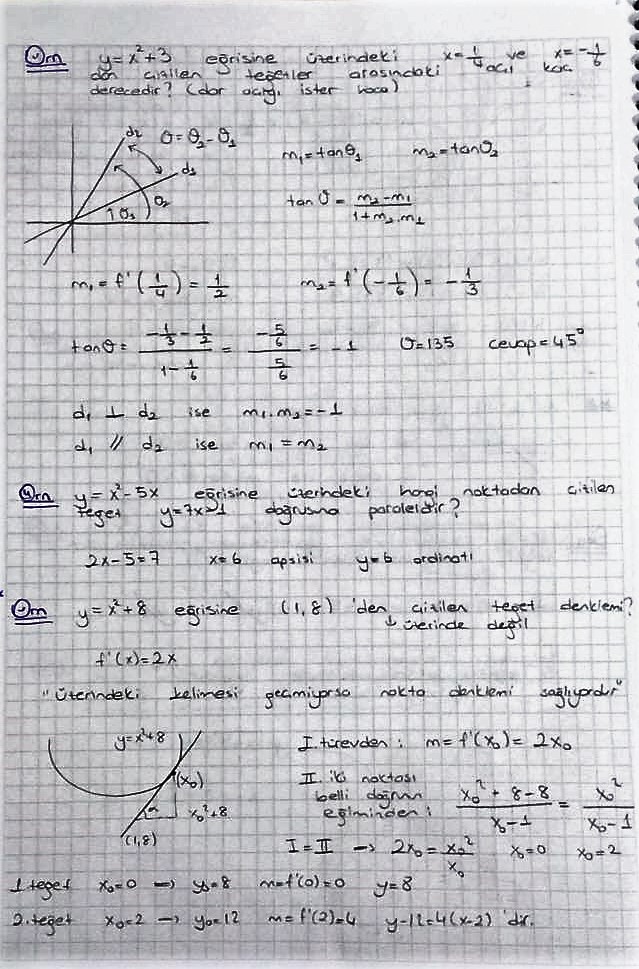 Örn y=x²+3 eğrisine üzerindeki x=1/4 ve x=-1/6
dan çizilen teğetler arasındaki açı kaç
derecedir? (dar açığı ister hoca)
d₂ θ=θ₂-θ₁
d₁
θ₂
θ₁
m₁=tanθ₁ m₂=tanθ₂
tanθ = (m₂-m₁)/(1+m₂.m₁)
m₁=f'(1/4)=1/2 m₂=f'(-1/6)=-1/3
tanθ = (-1/3-1/2)/(1-1/6) = (-5/6)/(5/6) = -1 θ=135 cevap=45°
d₁ ⊥ d₂ ise m₁.m₂=-1
d₁ // d₂ ise m₁=m₂
Örn y=x²-5x eğrisine üzerindeki hangi noktadan çizilen
teğet y=7x-1 doğrusuna paraleldir?
2x-5=7 x=6 apsisi y=6 ordinatı
Örn y=x²+8 eğrisine (1,8)'den çizilen teğet denklemi?
↓ üzerinde değil
f'(x)=2x
"üzerindeki kelimesi geçmiyorsa nokta denklemi sağlıyordur"
y=x²+8
(x₀)
x₀²+8
(1,8)
I. türevden: m=f'(x₀)=2x₀
II iki noktası
belli doğrun
eğiminden: (x₀²+8-8)/(x₀-1) = x₀²/(x₀-1)
I=II → 2x₀=x₀²/x₀ x₀=0 x₀=2
1.teğet x₀=0 ⇒ y₀=8 m=f'(0)=0 y=8
2.teğet x₀=2 → y₀=12 m=f'(2)=4 y-12=4(x-2)'dir.